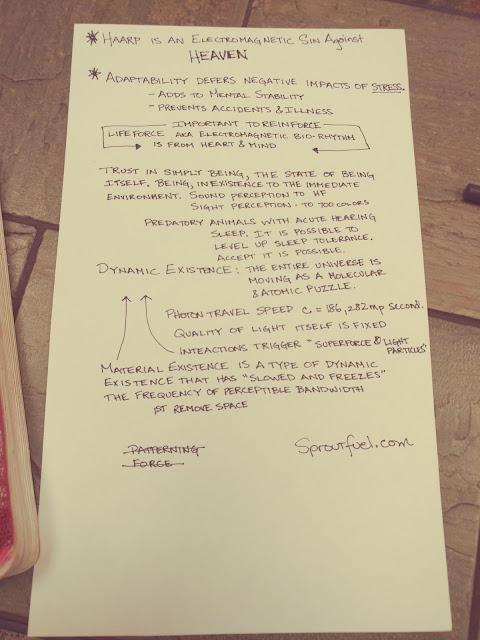 * HAARP IS AN ELECTROMAGNETIC SIN Against
HEAVEN
* ADAPTABILITY DEFERS NEGATIVE IMPACTS OF STRESS.
- ADDS TO MENTAL STABILITY
- PREVENTS ACCIDENTS & ILLNESS
IMPORTANT TO REINFORCE
LIFE FORCE AKA ELECTROMAGNETIC BIO-RHYTHM
IS FROM HEART & MIND
TRUST IN SIMPLY BEING, THE STATE OF BEING
ITSELF. BEING, IN EXISTENCE TO THE IMMEDIATE
ENVIRONMENT. SOUND PERCEPTION TO HF
SIGHT PERCEPTION - TO 700 COLORS
PREDATORY ANIMALS WITH ACUTE HEARING
SLEEP. IT IS POSSIBLE TO
LEVEL UP SLEEP TOLERANCE.
ACCEPT IT IS POSSIBLE.
DYNAMIC EXISTENCE: THE ENTIRE UNIVERSE IS
MOVING AS A MOLECULAR
& ATOMIC PUZZLE.
PHOTON TRAVEL SPEED C = 186,282 mp SECOND.
QUALITY OF LIGHT ITSELF IS FIXED
INTEACTIONS TRIGGER "SUPERFORCE & LIGHT
PARTICLES"
MATERIAL EXISTENCE IS A TYPE OF DYNAMIC
EXISTENCE THAT HAS "SLOWED AND FREEZES"
THE FREQUENCY OF PERCEPTIBLE BANDWIDTH
1ST REMOVE SPACE
PATTERNING
FORCE
Sproutfuel.com